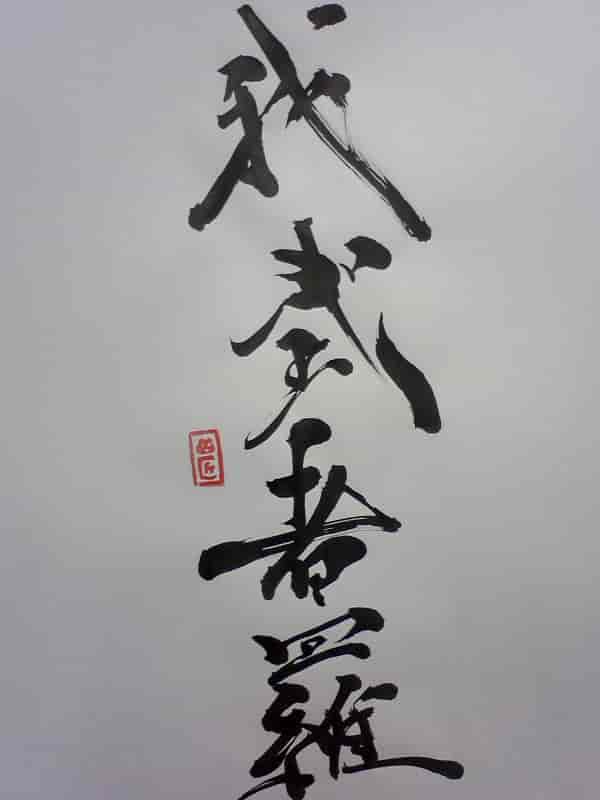 我武者羅